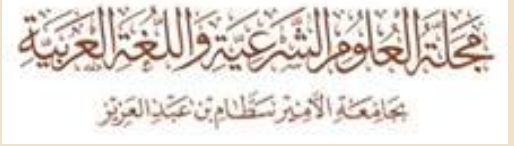 مَجَلَّةُ العُلُومِ الشَّرْعِيَّةِ وَاللُّغَةِ العَرَبِيَّةِ
بجَامِعَةِ الأَمِيْرِ سَطَّامِ بْن عَبْدِ العَزِيْز